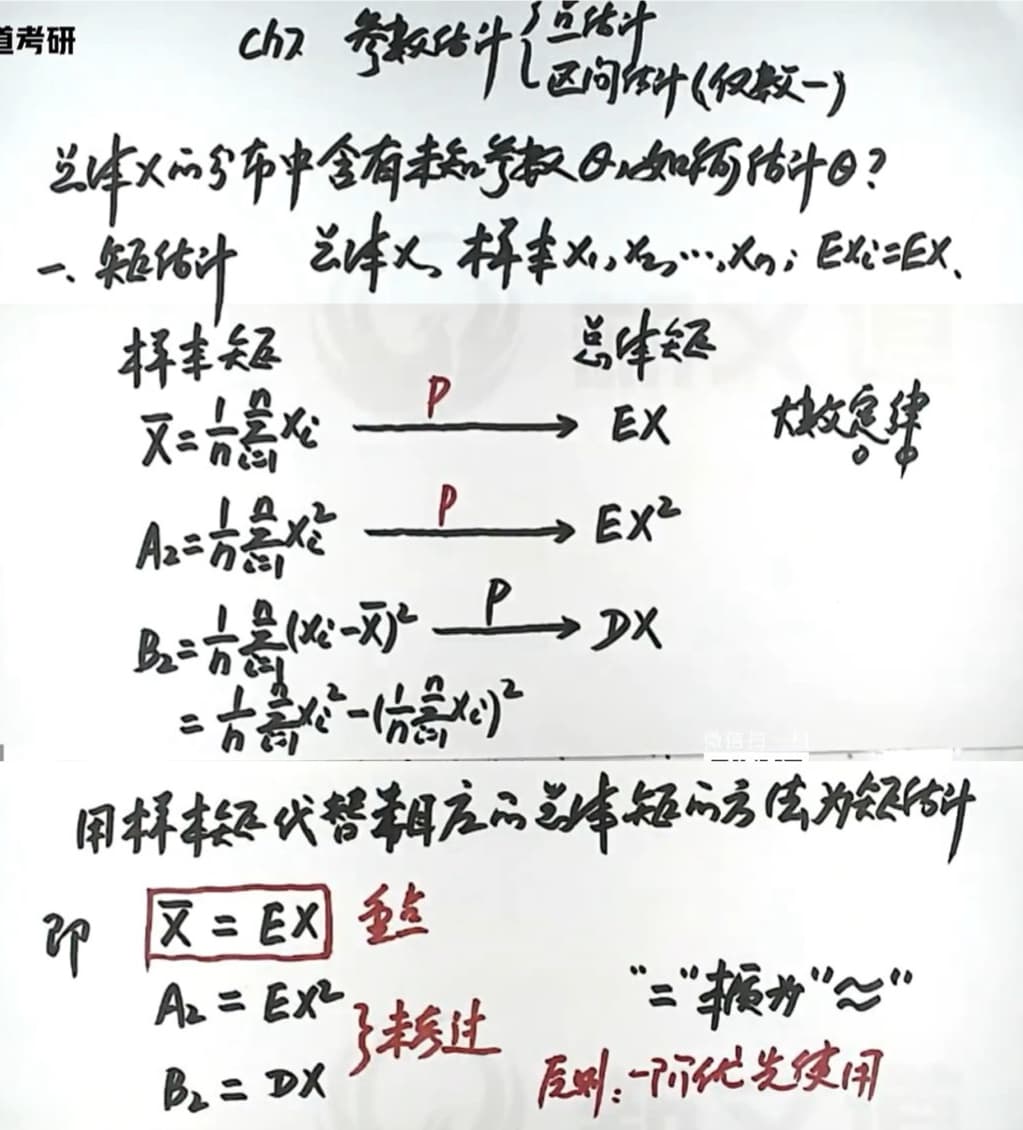 道考研
Ch7 参数估计{点估计
区间估计(仅数一)
总体X的分布中含有未知参数θ,如何估计θ?
一、矩估计 总体X, 样本X₁,X₂,…,Xₙ; EXᵢ=EX、
样本矩 总体矩
X̄=1/n Σᵢ₌₁ⁿ Xᵢ —P→ EX 大数定律
A₂=1/n Σᵢ₌₁ⁿ Xᵢ² —P→ EX²
B₂=1/n Σᵢ₌₁ⁿ (Xᵢ-X̄)² —P→ DX
=1/n Σᵢ₌₁ⁿ Xᵢ²-(1/n Σᵢ₌₁ⁿ Xᵢ)²
微信扫一扫
用样本矩代替相应的总体矩的方法,为矩估计
即 X̄ = EX 重点
A₂ = EX² }未考过 "="本质为"≈"
B₂ = DX 原则:一阶优先使用